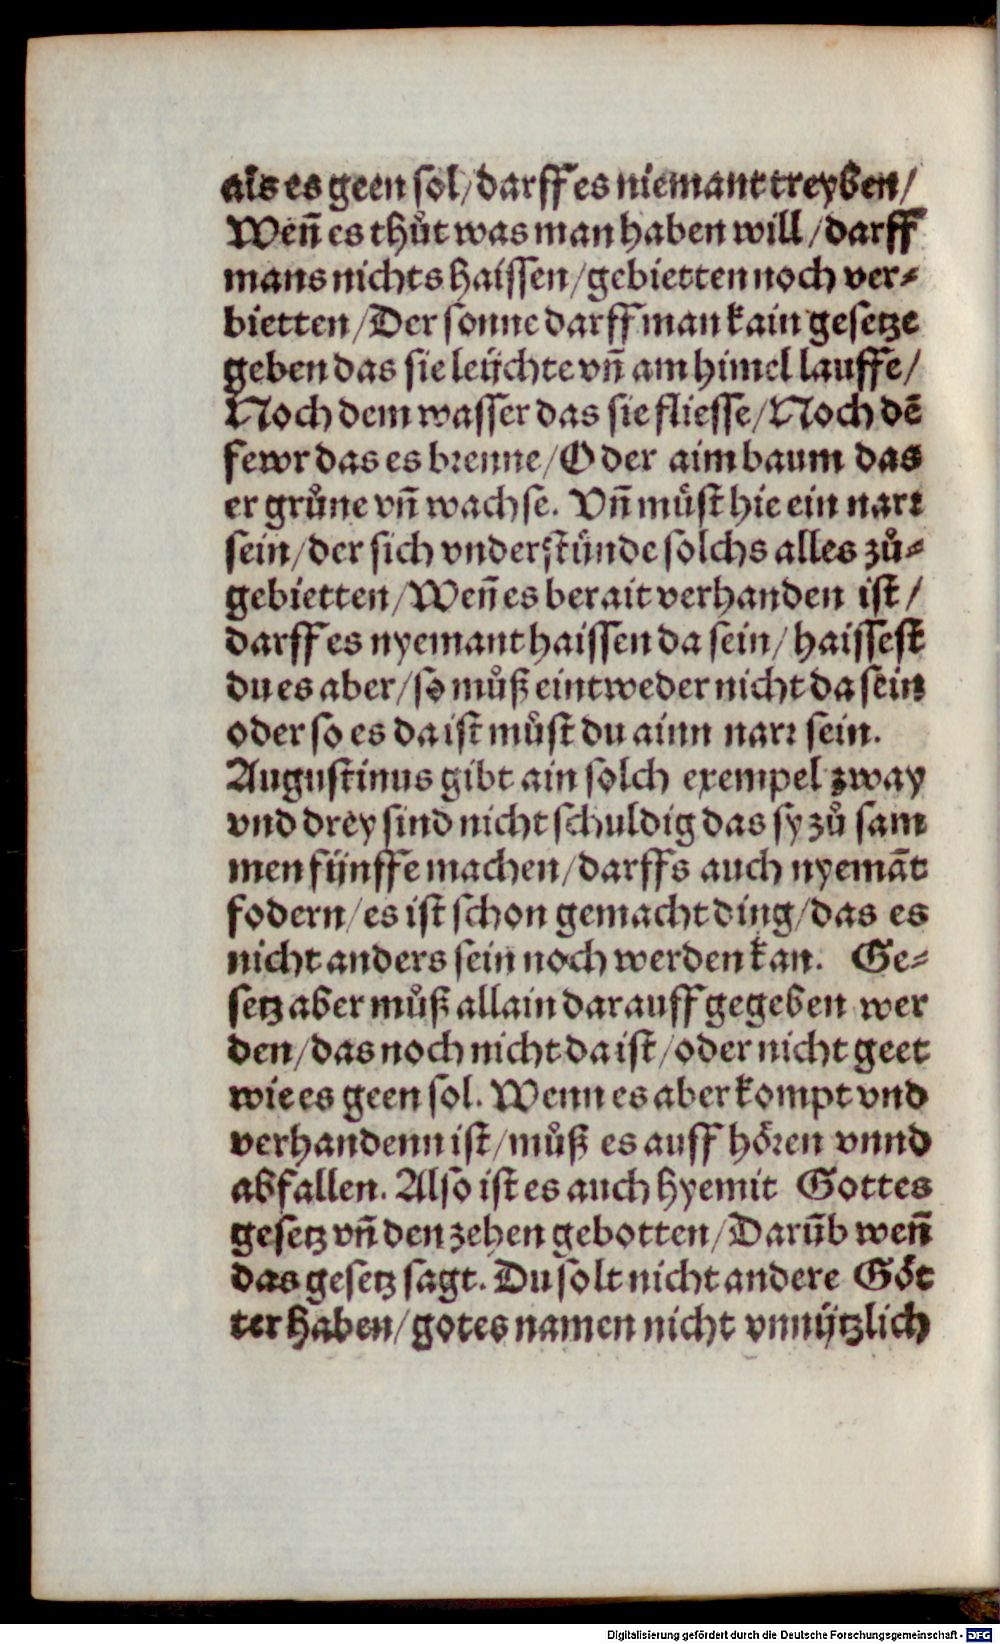 als es geen sol/darff es niemant treyben/
Weñ es thůt was man haben will/darff
mans nichts haissen/gebietten noch ver⸗
bietten/Der sonne darff man kain gesetze
geben das sie leüchte vñ am himel lauffe/
Noch dem wasser das sie fliesse/Noch dē
fewr das es brenne/Oder aim baum das
er grůne vñ wachse. Vñ můst hie ein narr
sein/der sich vnderstünde solchs alles zů⸗
gebietten/Weñ es berait verhanden ist/
darff es nyemant haissen da sein/haissest
du es aber/so můß eintweder nicht da sein
oder so es da ist můst du ainn narr sein.
Augustinus gibt ain solch exempel zway
vnd drey sind nicht schuldig das sy zů sam
men fünffe machen/darffs auch nyemāt
fodern/es ist schon gemacht ding/das es
nicht anders sein noch werden kan. Ge⸗
setz aber můß allain darauff gegeben wer
den/das noch nicht da ist/oder nicht geet
wie es geen sol. Wenn es aber kompt vnd
verhandenn ist/můß es auff hören vnnd
abfallen. Also ist es auch hyemit Gottes
gesetz vñ den zehen gebotten/Darūb weñ
das gesetz sagt. Du solt nicht andere Göt
ter haben/gotes namen nicht vnnützlich
Digitalisierung gefördert durch die Deutsche Forschungsgemeinschaft - DFG